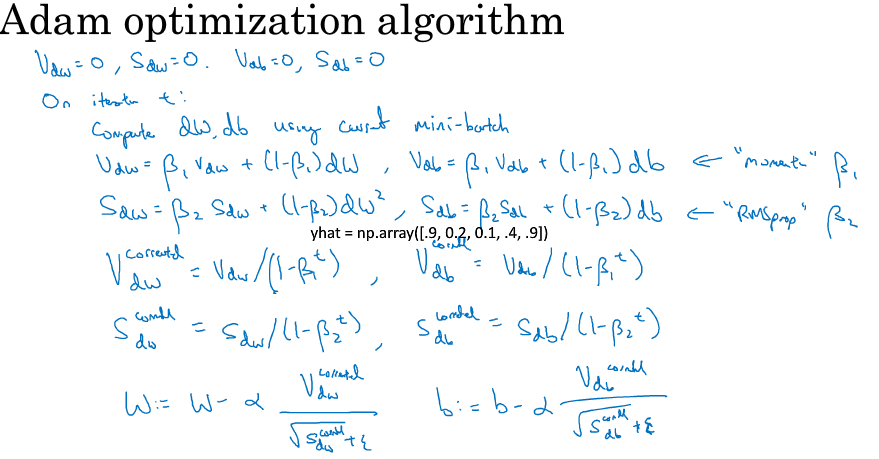 Adam optimization algorithm
V_dw = 0, S_dw = 0. V_db = 0, S_db = 0
On iteration t:
Compute dW, db using current mini-batch
V_dw = β₁ V_dw + (1-β₁) dW, V_db = β₁ V_db + (1-β₁) db ← "momentum" β₁
S_dw = β₂ S_dw + (1-β₂) dW², S_db = β₂ S_db + (1-β₂) db ← "RMSprop" β₂
yhat = np.array([.9, 0.2, 0.1, .4, .9])
V_dw^corrected = V_dw / (1-β₁^t), V_db^corrected = V_db / (1-β₁^t)
S_dw^corrected = S_dw / (1-β₂^t), S_db^corrected = S_db / (1-β₂^t)
W := W - α V_dw^corrected / (√S_dw^corrected + ε) b := b - α V_db^corrected / (√S_db^corrected + ε)